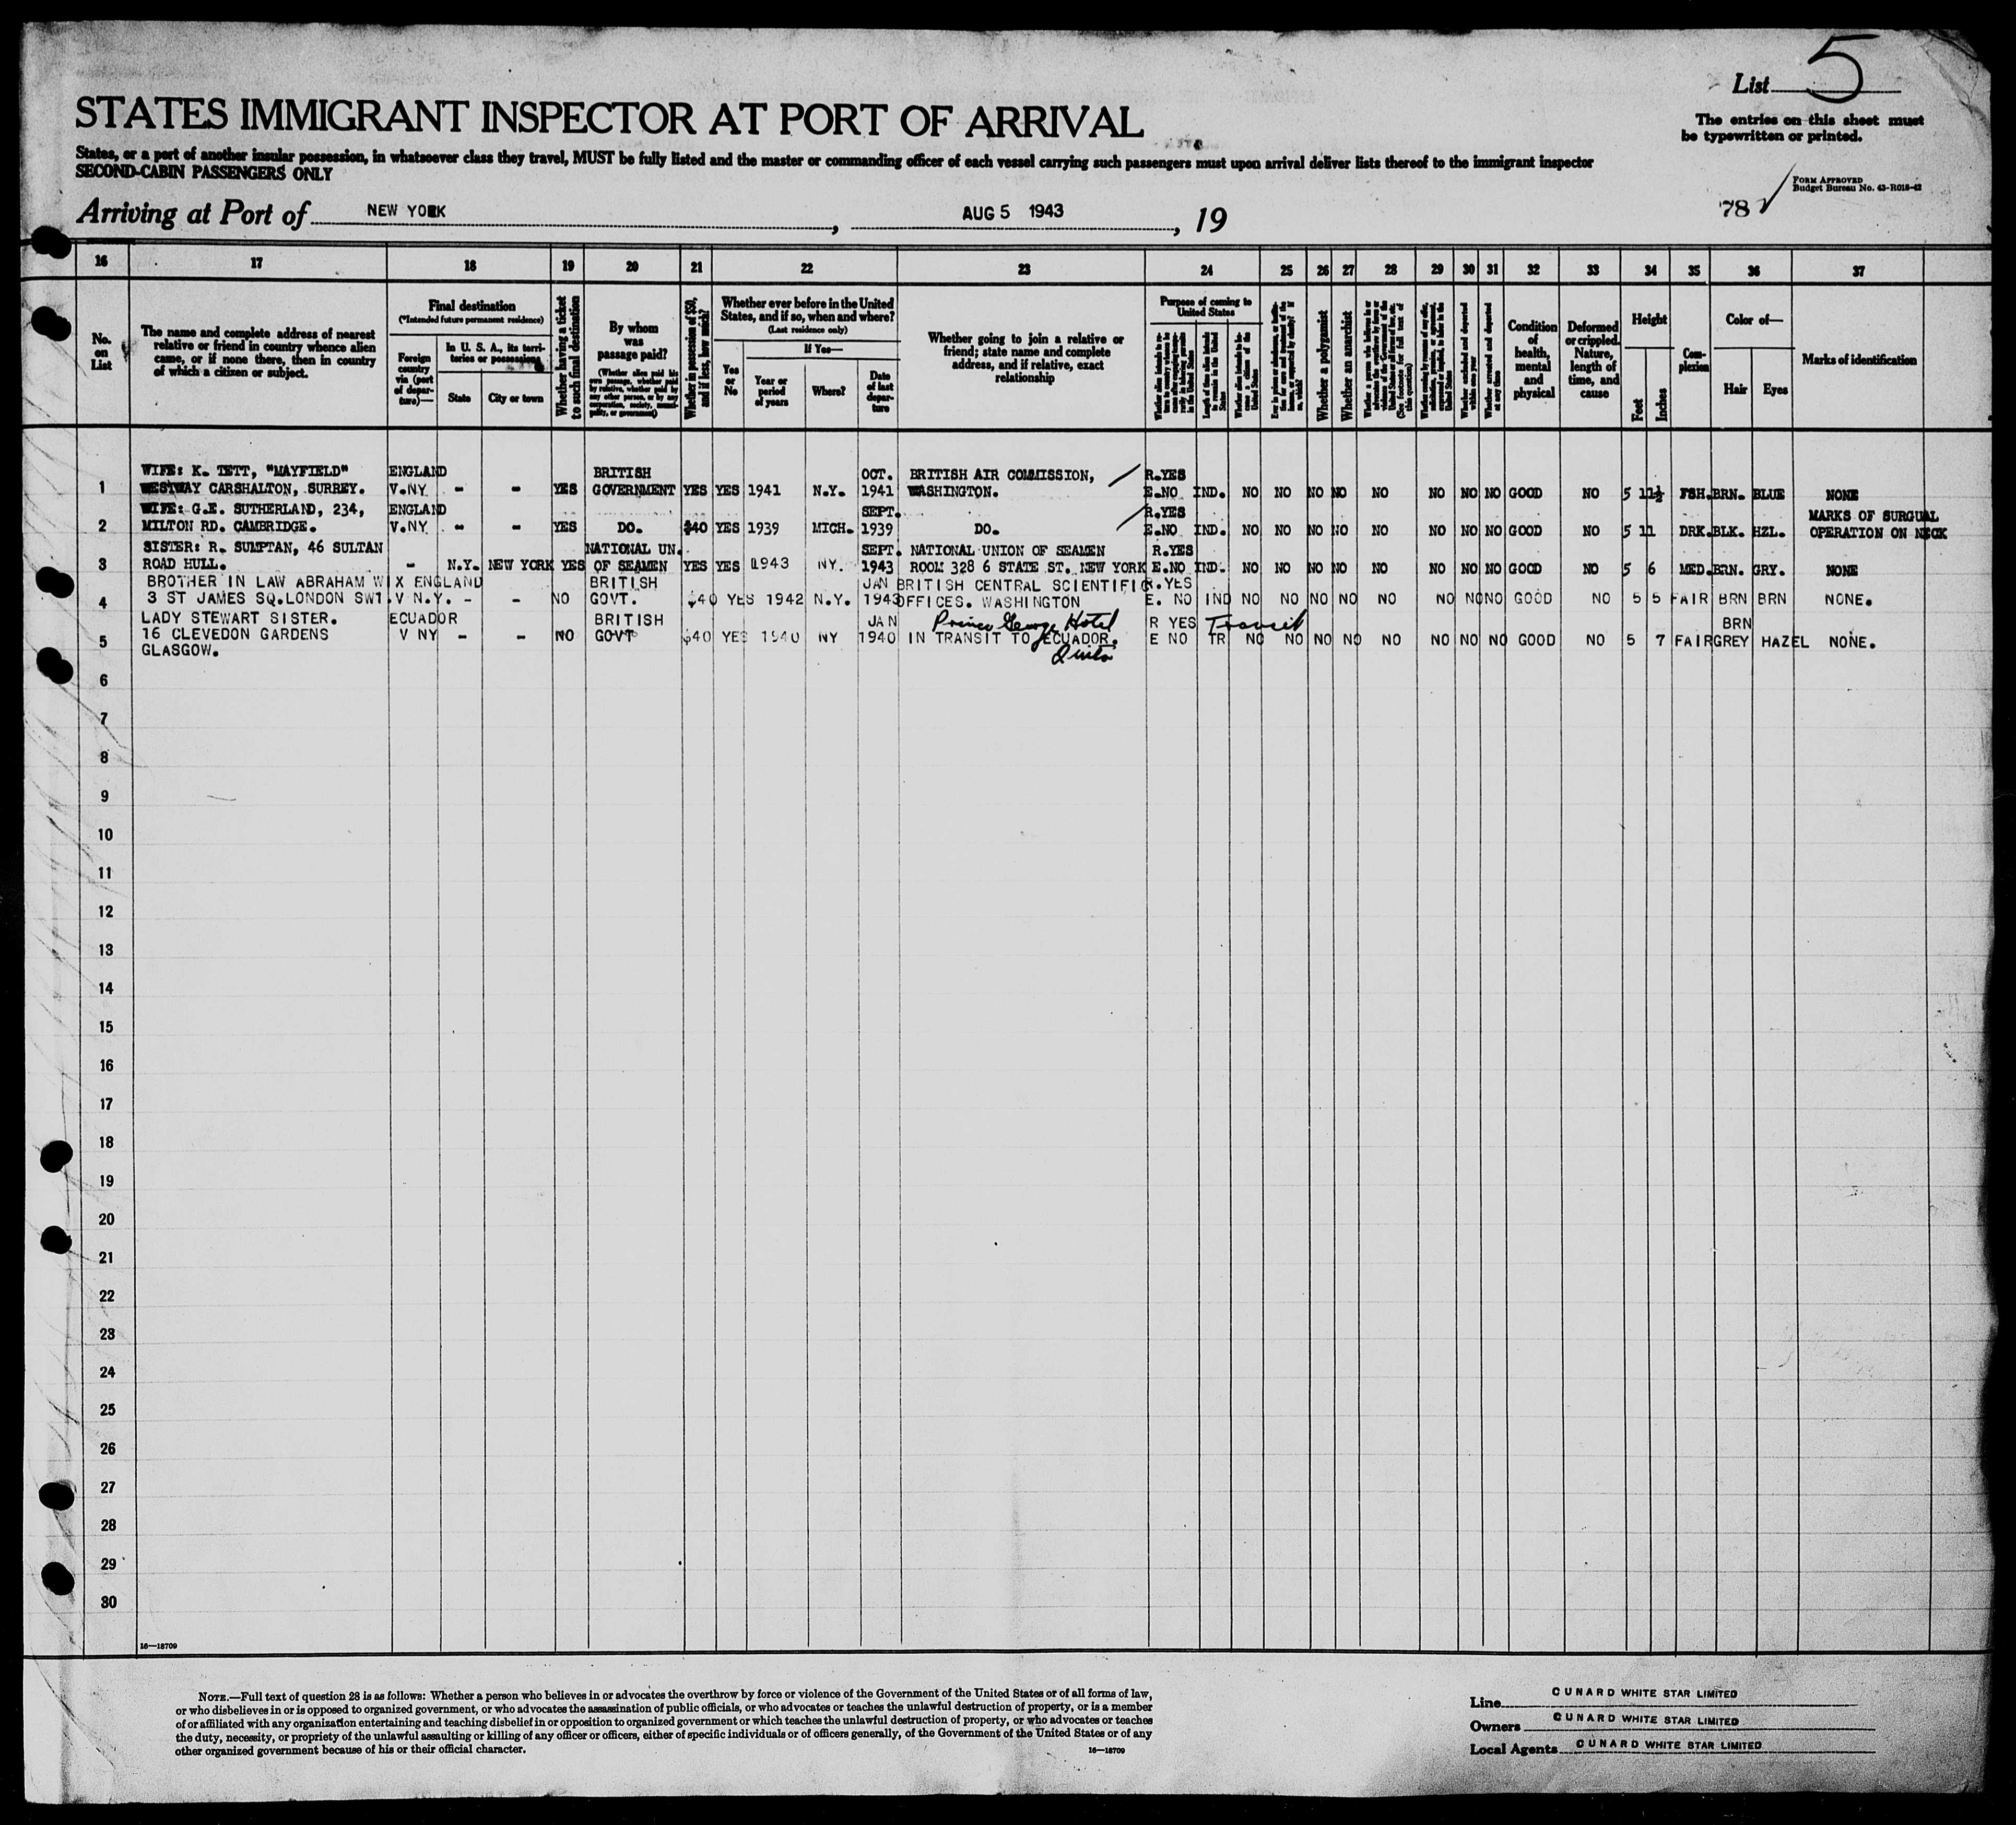 List 5
STATES IMMIGRANT INSPECTOR AT PORT OF ARRIVAL
The entries on this sheet must
be typewritten or printed.
States, or a port of another insular possession, in whatsoever class they travel, MUST be fully listed and the master or commanding officer of each vessel carrying such passengers must upon arrival deliver lists thereof to the immigrant inspector
SECOND-CABIN PASSENGERS ONLY
FORM APPROVED
Budget Bureau No. 43-R018-42
78
Arriving at Port of NEW YORK, AUG 5 1943, 19
16 17 18 19 20 21 22 23 24 25 26 27 28 29 30 31 32 33 34 35 36 37
No. on List
The name and complete address of nearest relative or friend in country whence alien came, or if none there, then in country of which a citizen or subject.
Final destination
(*Intended future permanent residence)
Foreign country via (port of departure)—
In U. S. A., its territories or possessions
State
City or town
Whether having a ticket to such final destination
By whom was passage paid?
(Whether alien paid his own passage, whether paid by relative, whether paid by any other person, or by any corporation, society, municipality, or government)
Whether in possession of $50, and if less, how much?
Whether ever before in the United States, and if so, when and where?
(Last residence only)
Yes or No
If Yes—
Year or period of years
Where?
Date of last departure
Whether going to join a relative or friend; state name and complete address, and if relative, exact relationship
Purpose of coming to United States
Whether a polygamist
Whether an anarchist
Whether excluded and deported within one year
Whether arrested and deported at any time
Condition of health, mental and physical
Deformed or crippled. Nature, length of time, and cause
Height
Feet
Inches
Complexion
Color of—
Hair
Eyes
Marks of identification
WIFE: K. TETT, "MAYFIELD" ENGLAND BRITISH OCT. BRITISH AIR COMMISSION, R.YES
1 WESTWAY CARSHALTON, SURREY. V.NY - - YES GOVERNMENT YES YES 1941 N.Y. 1941 WASHINGTON. E.NO IND. NO NO NO NO NO NO NO NO GOOD NO 5 11½ FSH. BRN. BLUE NONE
WIFE: G.E. SUTHERLAND, 234, ENGLAND SEPT. R.YES MARKS OF SURGUAL
2 MILTON RD. CAMBRIDGE. V.NY - - YES DO. $40 YES 1939 MICH. 1939 DO. E.NO IND. NO NO NO NO NO NO NO NO GOOD NO 5 11 DRK. BLK. HZL. OPERATION ON NECK
SISTER: R. SUMPTAN, 46 SULTAN NATIONAL UN. SEPT. NATIONAL UNION OF SEAMEN R.YES
3 ROAD HULL. - N.Y. NEW YORK YES OF SEAMEN YES YES 1943 NY. 1943 ROOM 328 6 STATE ST. NEW YORK E.NO IND. NO NO NO NO NO NO NO NO GOOD NO 5 6 MED. BRN. GRY. NONE
BROTHER IN LAW ABRAHAM WIX ENGLAND BRITISH JAN BRITISH CENTRAL SCIENTIFIC R.YES
4 3 ST JAMES SQ.LONDON SW1. V N.Y. - - NO GOVT. $40 YES 1942 N.Y. 1943 OFFICES. WASHINGTON E. NO IND NO NO NO NO NO NO NO NO GOOD NO 5 5 FAIR BRN BRN NONE.
LADY STEWART SISTER. ECUADOR BRITISH JAN Prince George Hotel R YES Transit BRN
5 16 CLEVEDON GARDENS V NY - - NO GOVT $40 YES 1940 NY 1940 IN TRANSIT TO ECUADOR. E NO TR NO NO NO NO NO NO NO NO GOOD NO 5 7 FAIR GREY HAZEL NONE.
GLASGOW. Quito
6
7
8
9
10
11
12
13
14
15
16
17
18
19
20
21
22
23
24
25
26
27
28
29
30
16—18709
NOTE.—Full text of question 28 is as follows: Whether a person who believes in or advocates the overthrow by force or violence of the Government of the United States or of all forms of law,
or who disbelieves in or is opposed to organized government, or who advocates the assassination of public officials, or who advocates or teaches the unlawful destruction of property, or is a member
of or affiliated with any organization entertaining and teaching disbelief in or opposition to organized government or which teaches the unlawful destruction of property, or who advocates or teaches
the duty, necessity, or propriety of the unlawful assaulting or killing of any officer or officers, either of specific individuals or of officers generally, of the Government of the United States or of any
other organized government because of his or their official character.
16—18709
Line CUNARD WHITE STAR LIMITED
Owners CUNARD WHITE STAR LIMITED
Local Agents CUNARD WHITE STAR LIMITED